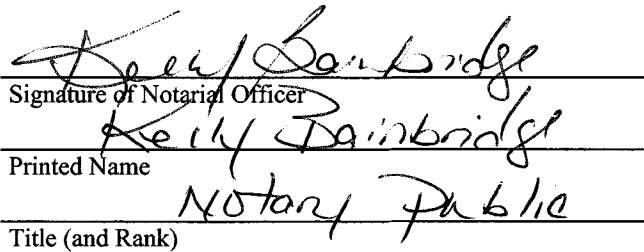 Kelly Bainbridge
Signature of Notarial Officer
Kelly Bainbridge
Printed Name
Notary Public
Title (and Rank)